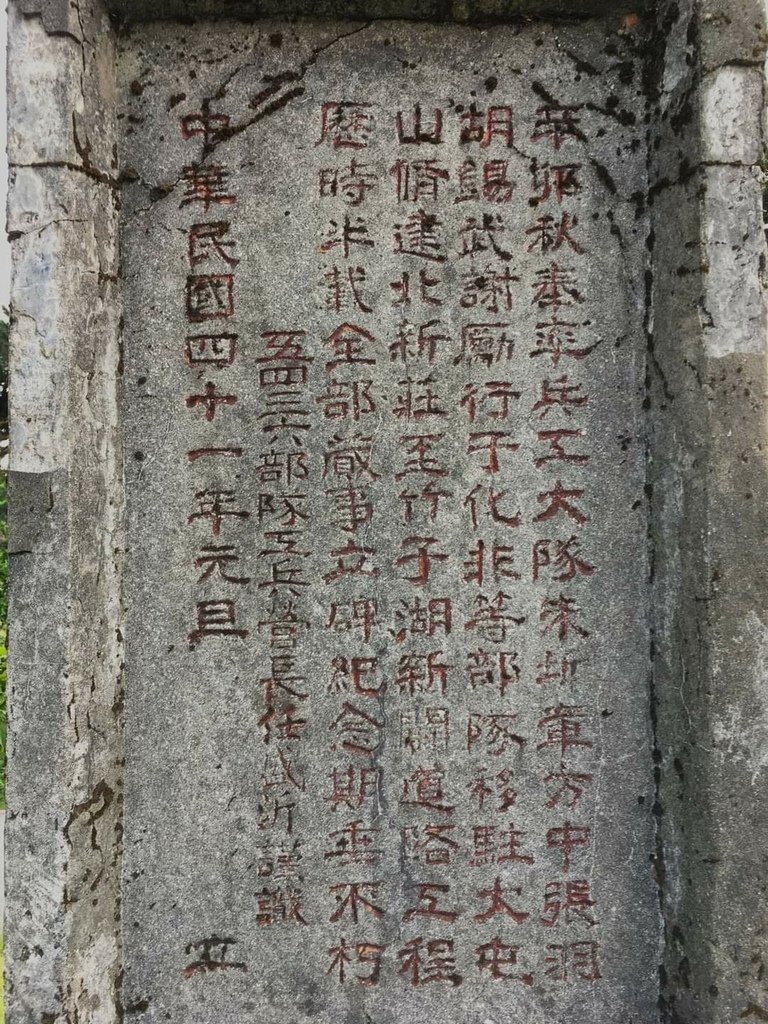 辛卯秋奉率兵工大隊朱圻章方中張羽
胡錫武謝勵行于化非等部隊移駐大屯
山脩建北新莊至竹子湖新闢道路工程
歷時半載全部蕆事立碑紀念期垂不朽
五四三六部隊工兵營長任武沂謹識
中華民國四十一年元旦 立